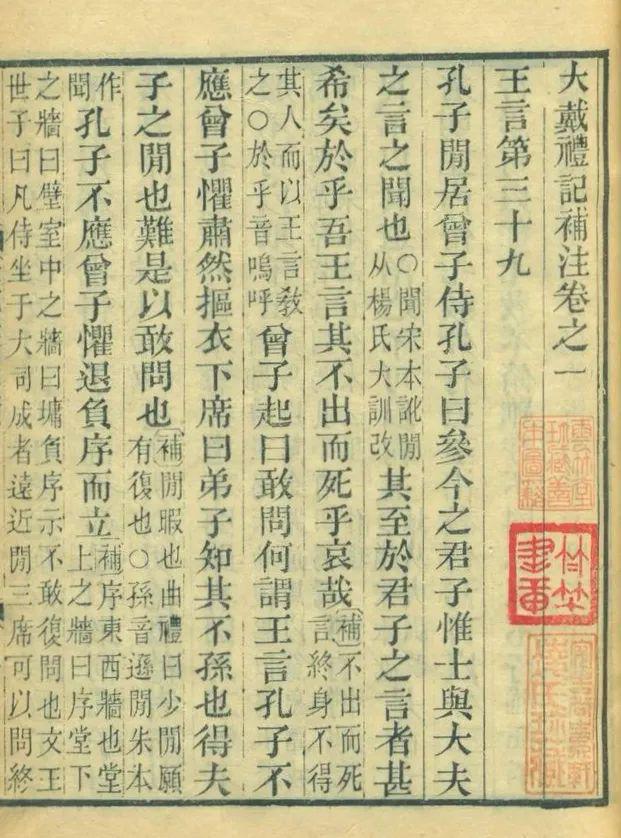 大戴禮記補注卷之一
王言第三十九
孔子閒居曾子侍孔子曰參今之君子惟士與大夫
之言之聞也○聞宋本訛閒从楊氏大訓改其至於君子之言者甚
希矣於乎吾王言其不出而死乎哀哉補不出而死言終身不得
其人而以王言敎之○於乎音嗚呼曾子起曰敢問何謂王言孔子不
應曾子懼肅然摳衣下席曰弟子知其不孫也得夫
子之閒也難是以敢問也補閒暇也曲禮曰少閒願有復也○孫音遜閒朱本
作聞孔子不應曾子懼退負序而立補序東西牆也堂上之牆曰序堂下
之牆曰壁室中之牆曰墉負序示不敢復問也文王
世子曰凡侍坐于大司成者遠近閒三席可以問終